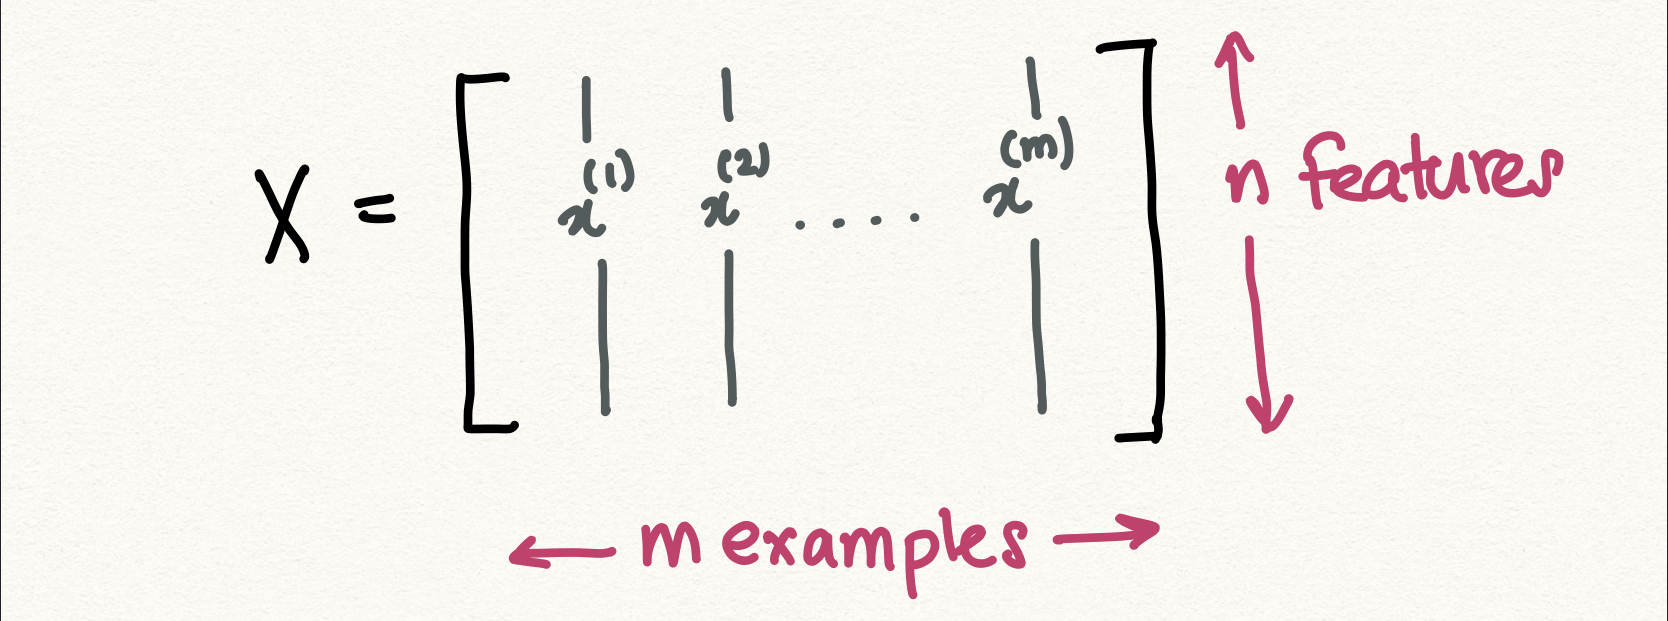 X = [ x^(1) x^(2) .... x^(m) ] n features
m examples